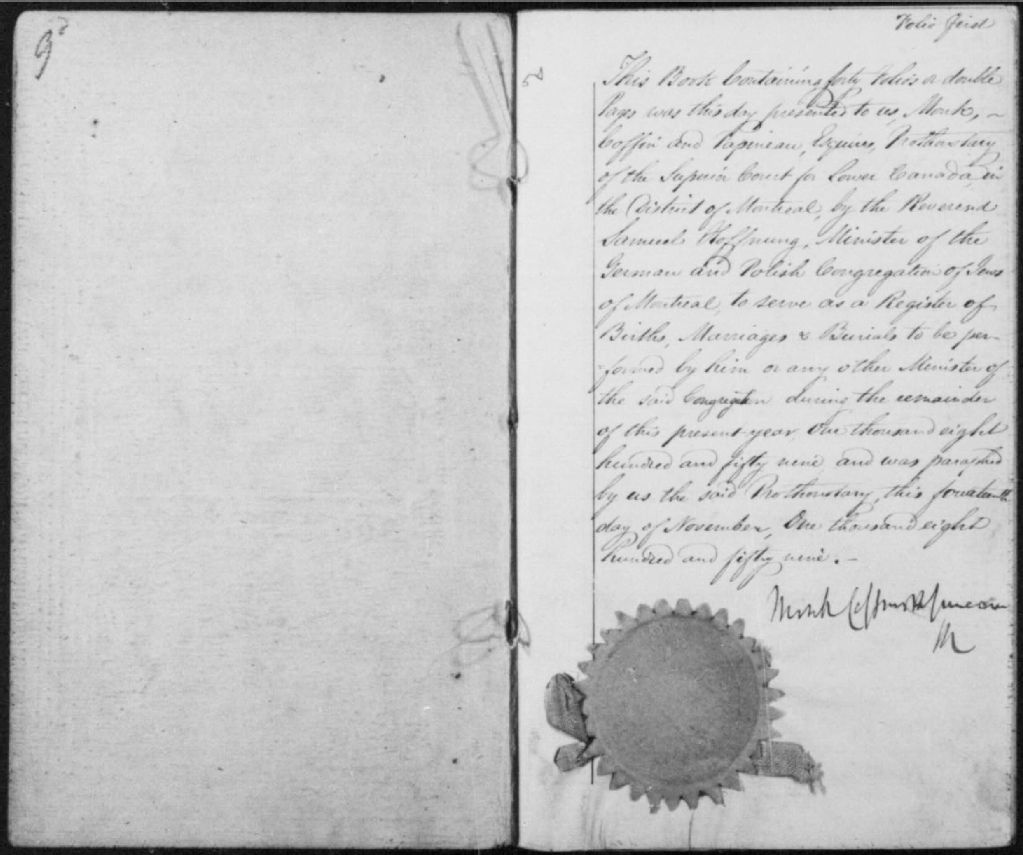 Folio first
This Book Containing forty folio's or double
Pages was this day presented to us, Monk, ~
Coffin and Papineau, Esquires, Prothonotary
of the Superior Court for Lower Canada, in
the District of Montreal, by the Reverend
Samuel Hoffnung, Minister of the
German and Polish Congregation of Jews
of Montreal, to serve as a Register of
Births, Marriages & Burials to be per-
-formed by him or any other Minister of
the said Congregation during the remainder
of this present year, One thousand eight
hundred and fifty nine and was paraphed
by us the said Prothonotary, this fourteenth
day of November, One thousand eight
hundred and fifty nine. —
Monk Coffin & Papineau